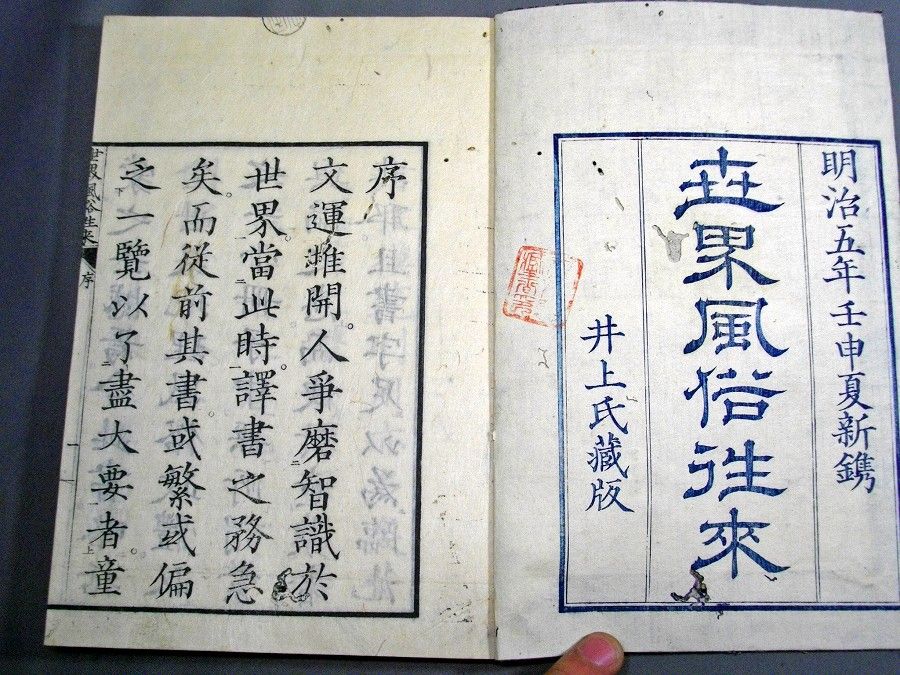 明治五年壬申夏新鐫
世界風俗往來
井上氏藏版
序
文運漸開人爭磨智識於
世界當此時譯書之務急
矣而從前其書或繁或偏
乏一覽以了盡大要者童
世界風俗往來 序